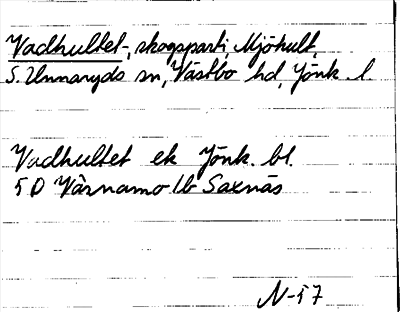 Vadhultet-, skogsparti, Mjöhult,
S. Unnaryds sn, Västbo hd, Jönk. l.
Vadhultet ek Jönk. bl.
5 D Värnamo 1b Saxnäs
N-57